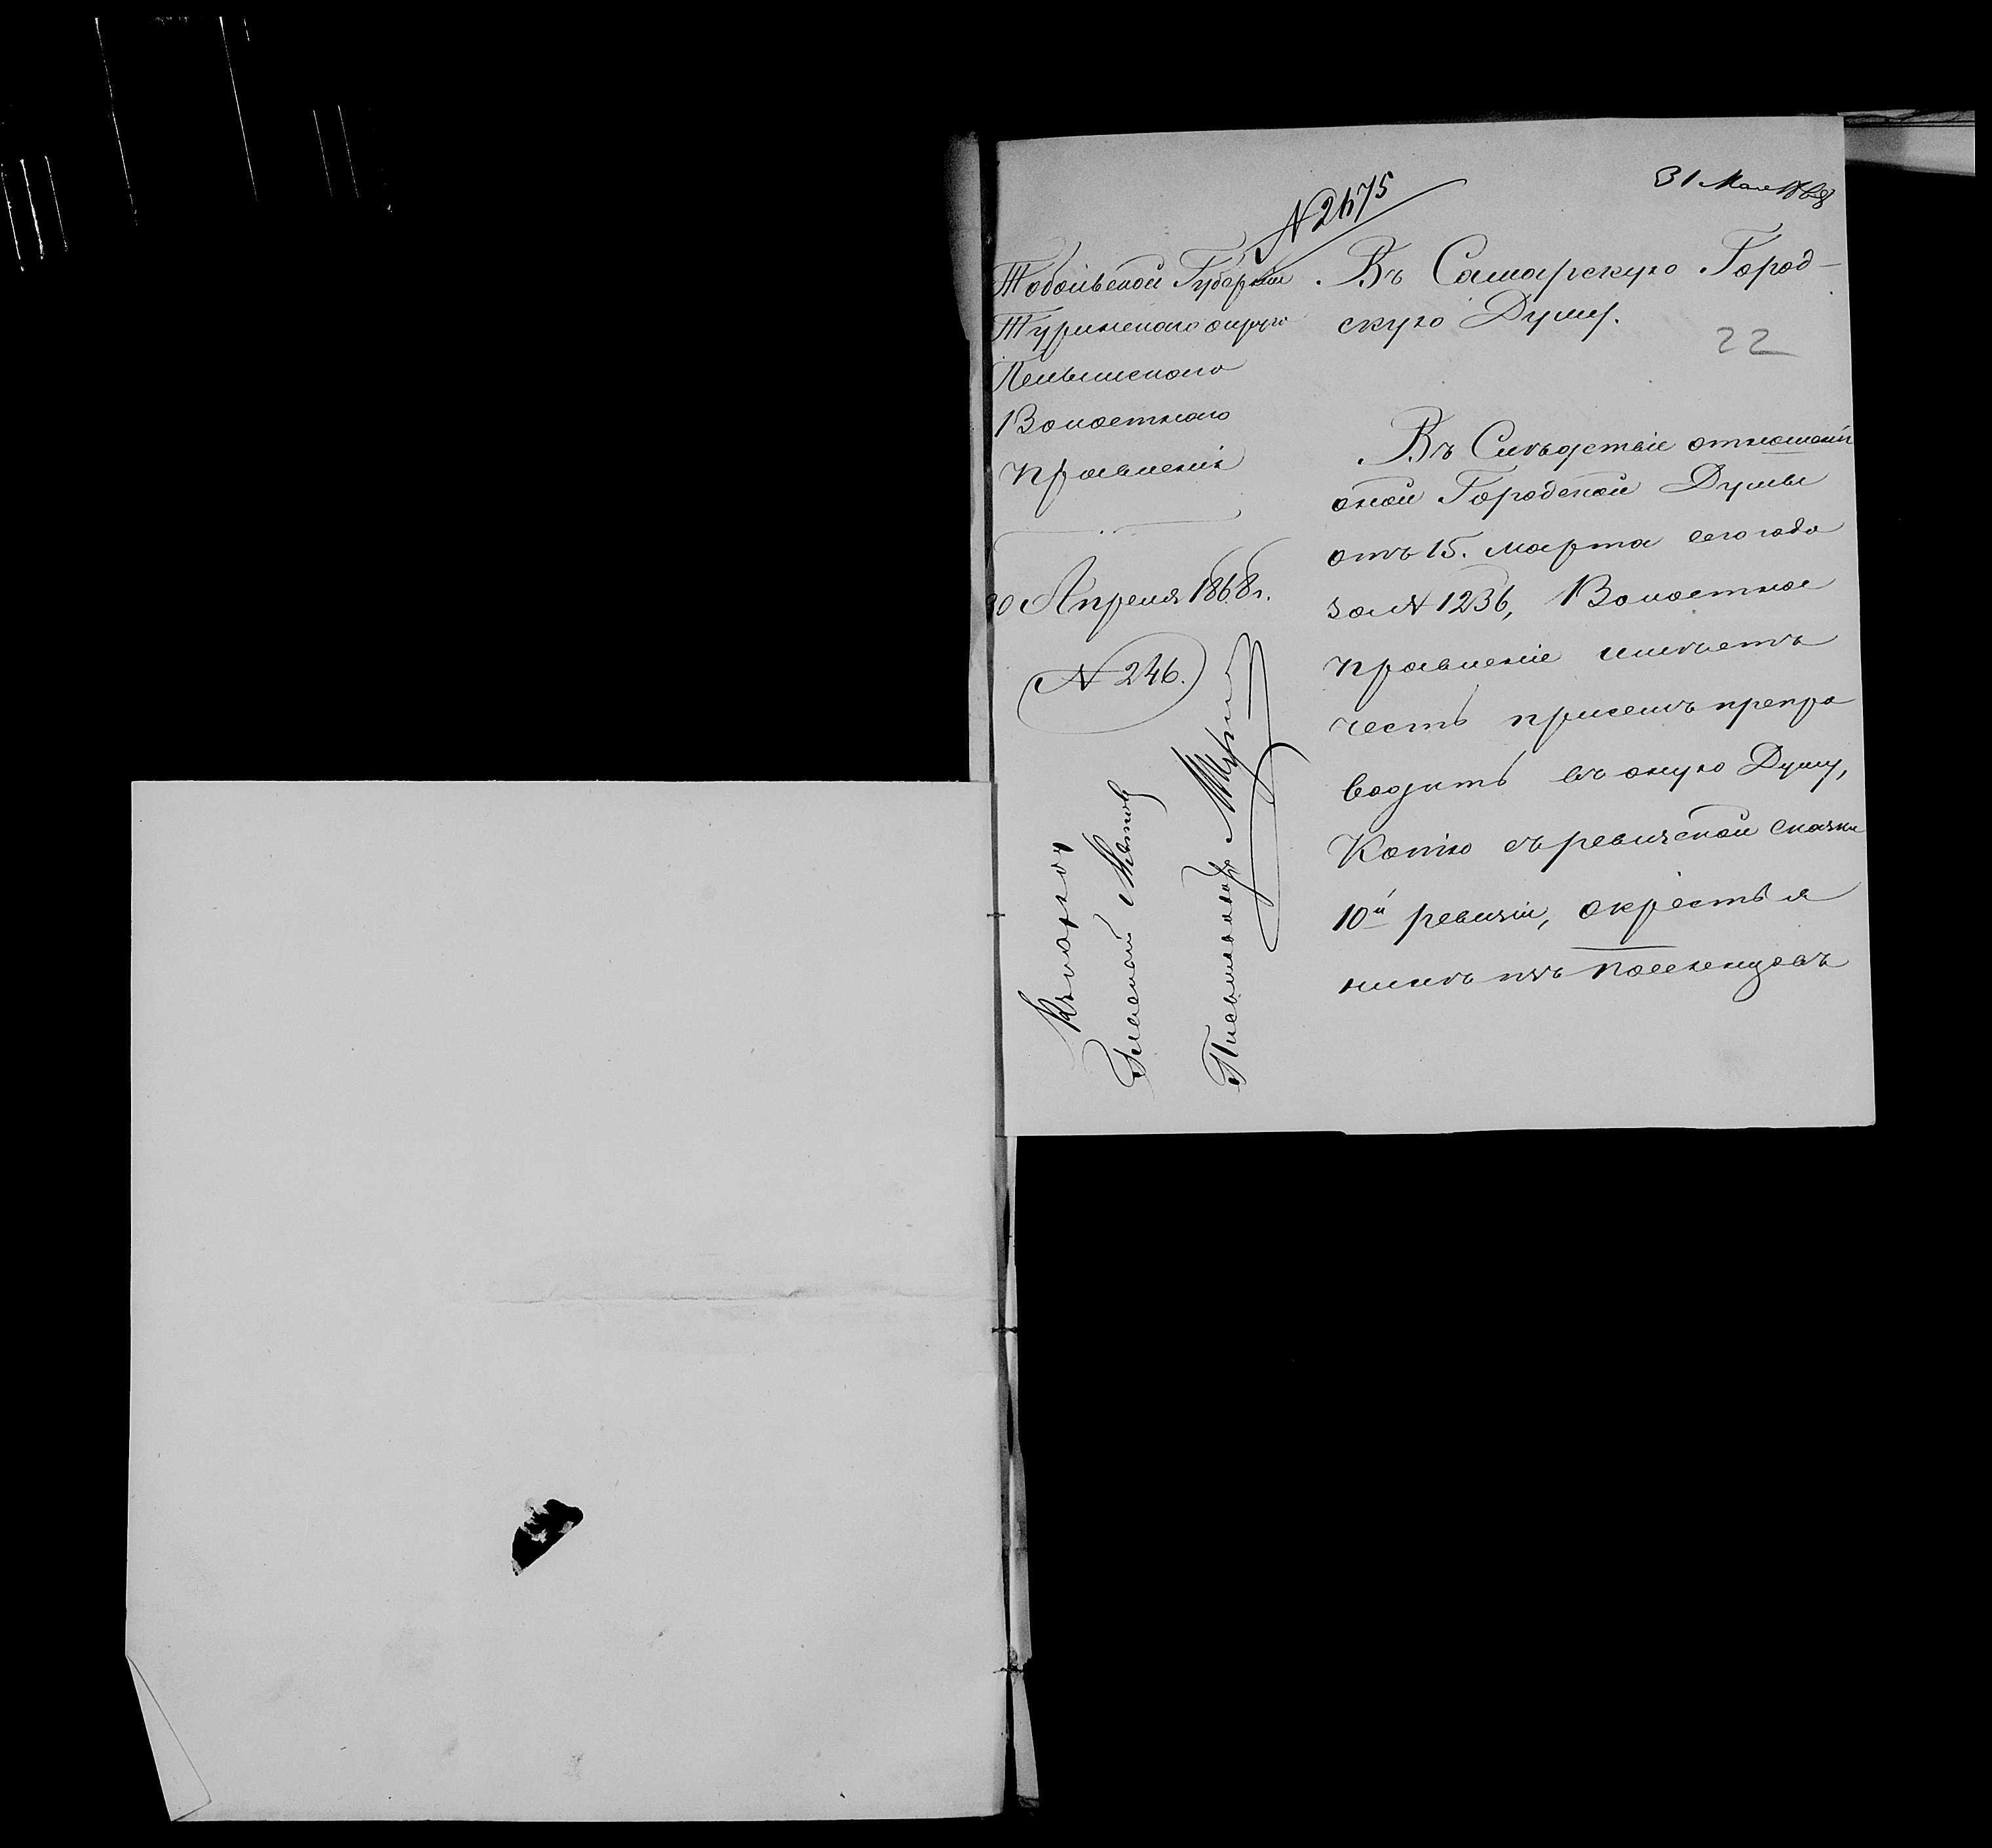 31 Мая 1868
N 2675
Тобольской Губерніи
Туринскаго округа
Пелымскаго
Волостнаго
правленія
30 Апреля 1868 г.
N 246.
Въ Самарскую Город-
скую Думу.
22
Въ Слѣдствіе отношенія
оной Городской Думы
отъ 15. марта сего года
за N 1236, Волостное
правленіе имѣетъ
честь присемъ препро
водить въ оную Думу,
Копію съ ревизской сказки
10й ревизіи, окрестья
нинѣ изъ поселенцовъ
Къ
Волостной
Письмоводитель